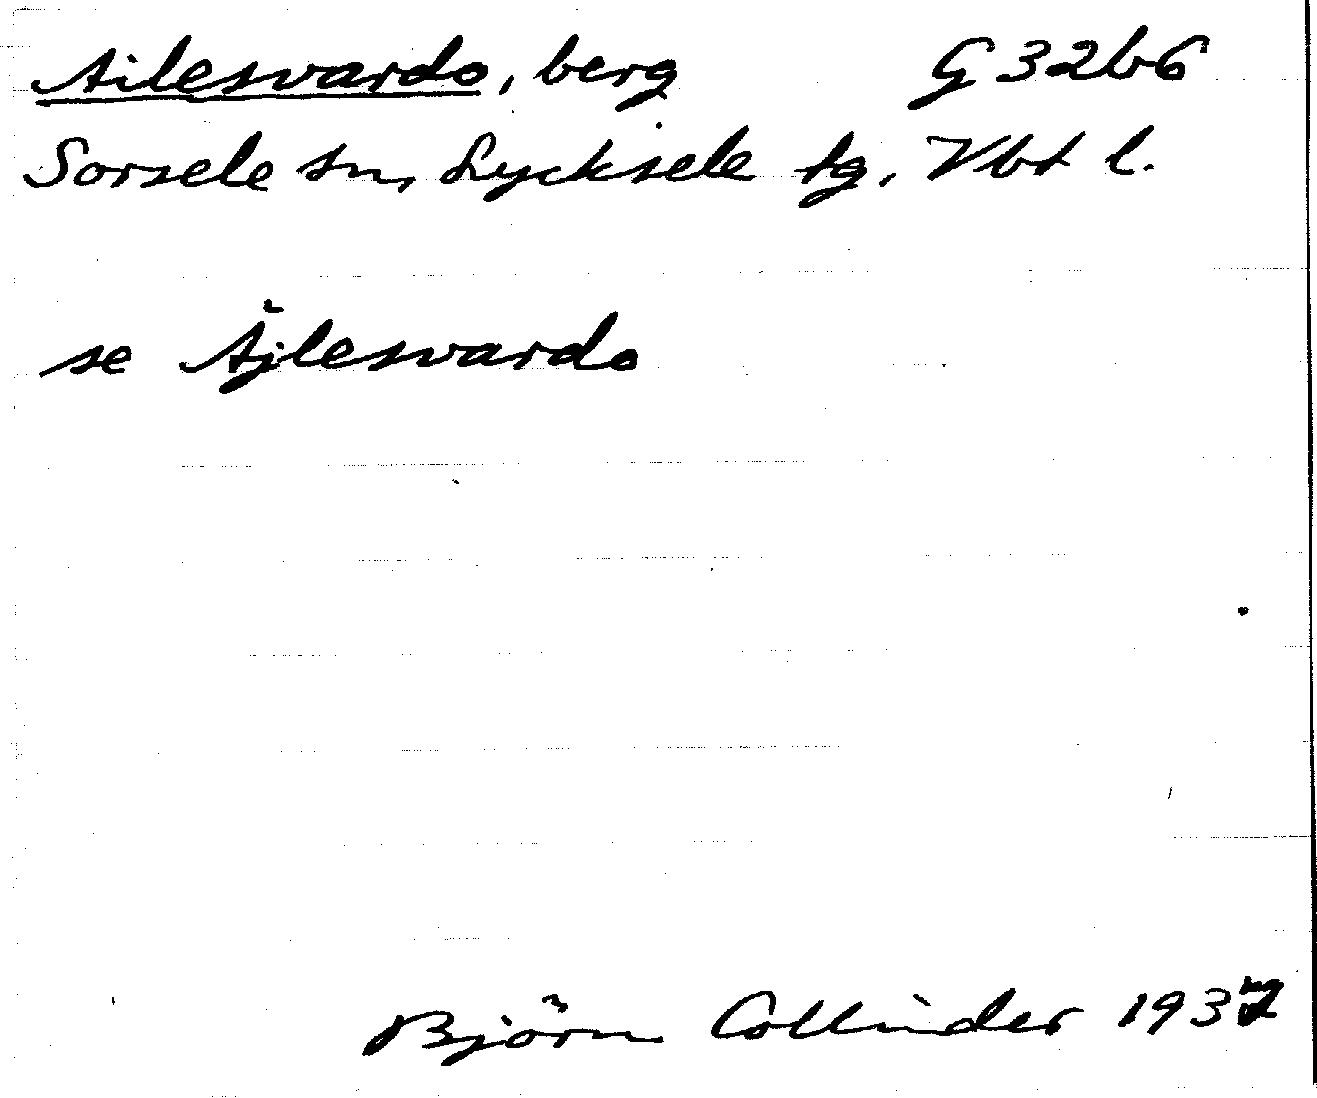 Ailesvardo, berg G 32b6
Sorsele sn, Lycksele tg. Vbt l.
se Äjlesvardo
Björn Collinder